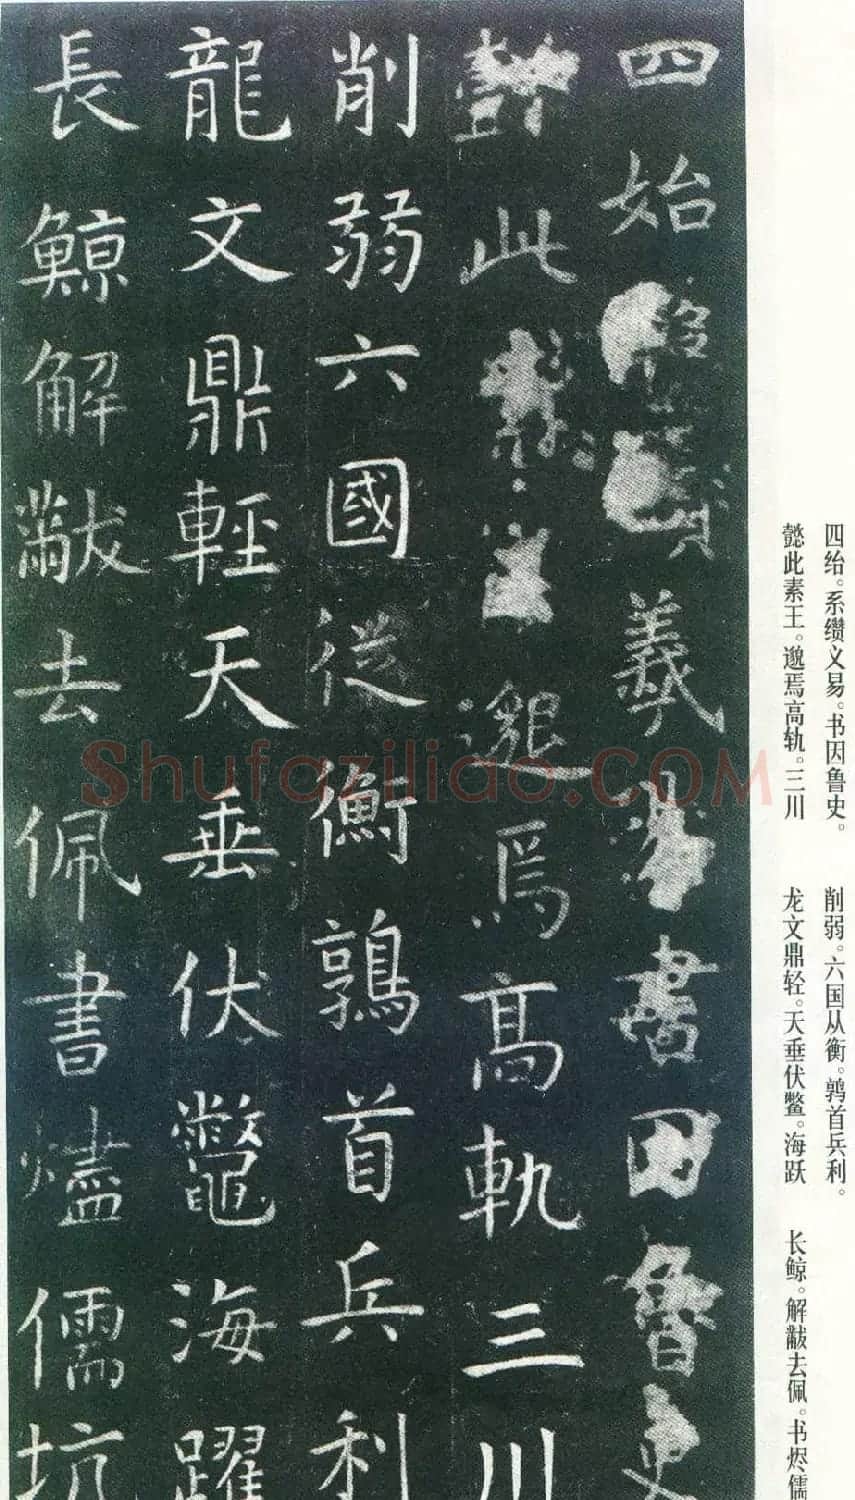 四始繫纘羲易書因魯史
懿此素王邈焉高軌三川
削弱六國從衡鶉首兵利
龍文鼎輕天垂伏鼈海躍
長鯨解黻去佩書燼儒坑
四绐。系缵义易。书因鲁史。
懿此素王。邈焉高轨。三川
削弱。六国从衡。鹑首兵利。
龙文鼎轻。天垂伏鳖。海跃
长鲸。解黻去佩。书烬儒
Shufaziliao.COM